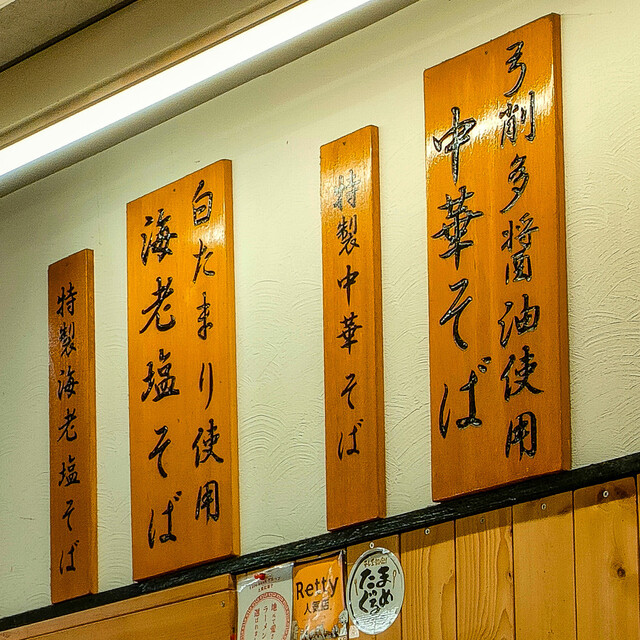 弓削多醤油使用
中華そば
特製中華そば
白たまり使用
海老塩そば
特製海老塩そば
Retty
人気店
たまぐるめ